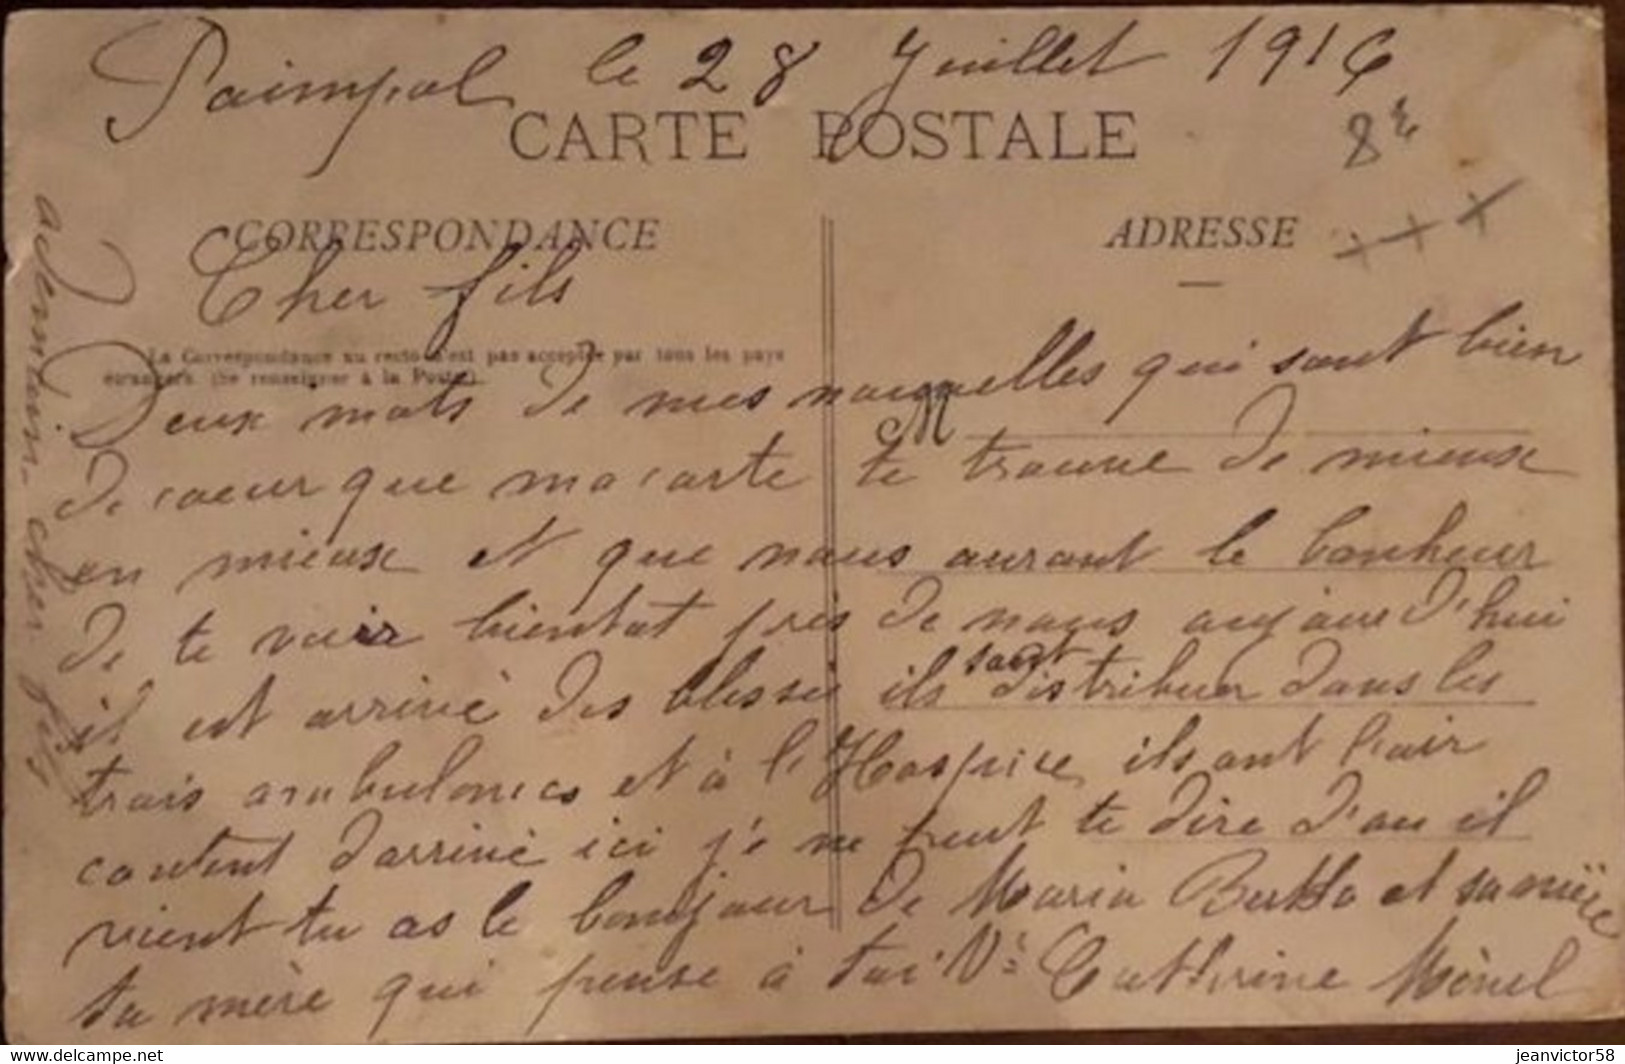 Paimpol le 28 Juillet 1916
CARTE POSTALE
8e
CORRESPONDANCE
ADRESSE
Cher fils
La Correspondance au recto n'est pas acceptée par tous les pays
étrangers (Se renseigner à la Poste).
Deux mots de mes nouvelles qui sont bien
M
de coeur que ma carte te trouve de mieux
en mieux et que nous auront le bonheur
de te voir bientot près de nous aujourd'hui
il est arrivé des blessés ils sont distribuer dans les
trois ambulances et à l'Hospice ils ont l'air
content d'arrivé ici je ne peut te dire d'ou il
vient tu as le bonjour de Maria Bertho et sa mère
ta mère qui pense à toi Ve Catherine Menel
a demain cher fils
jeanvictor58